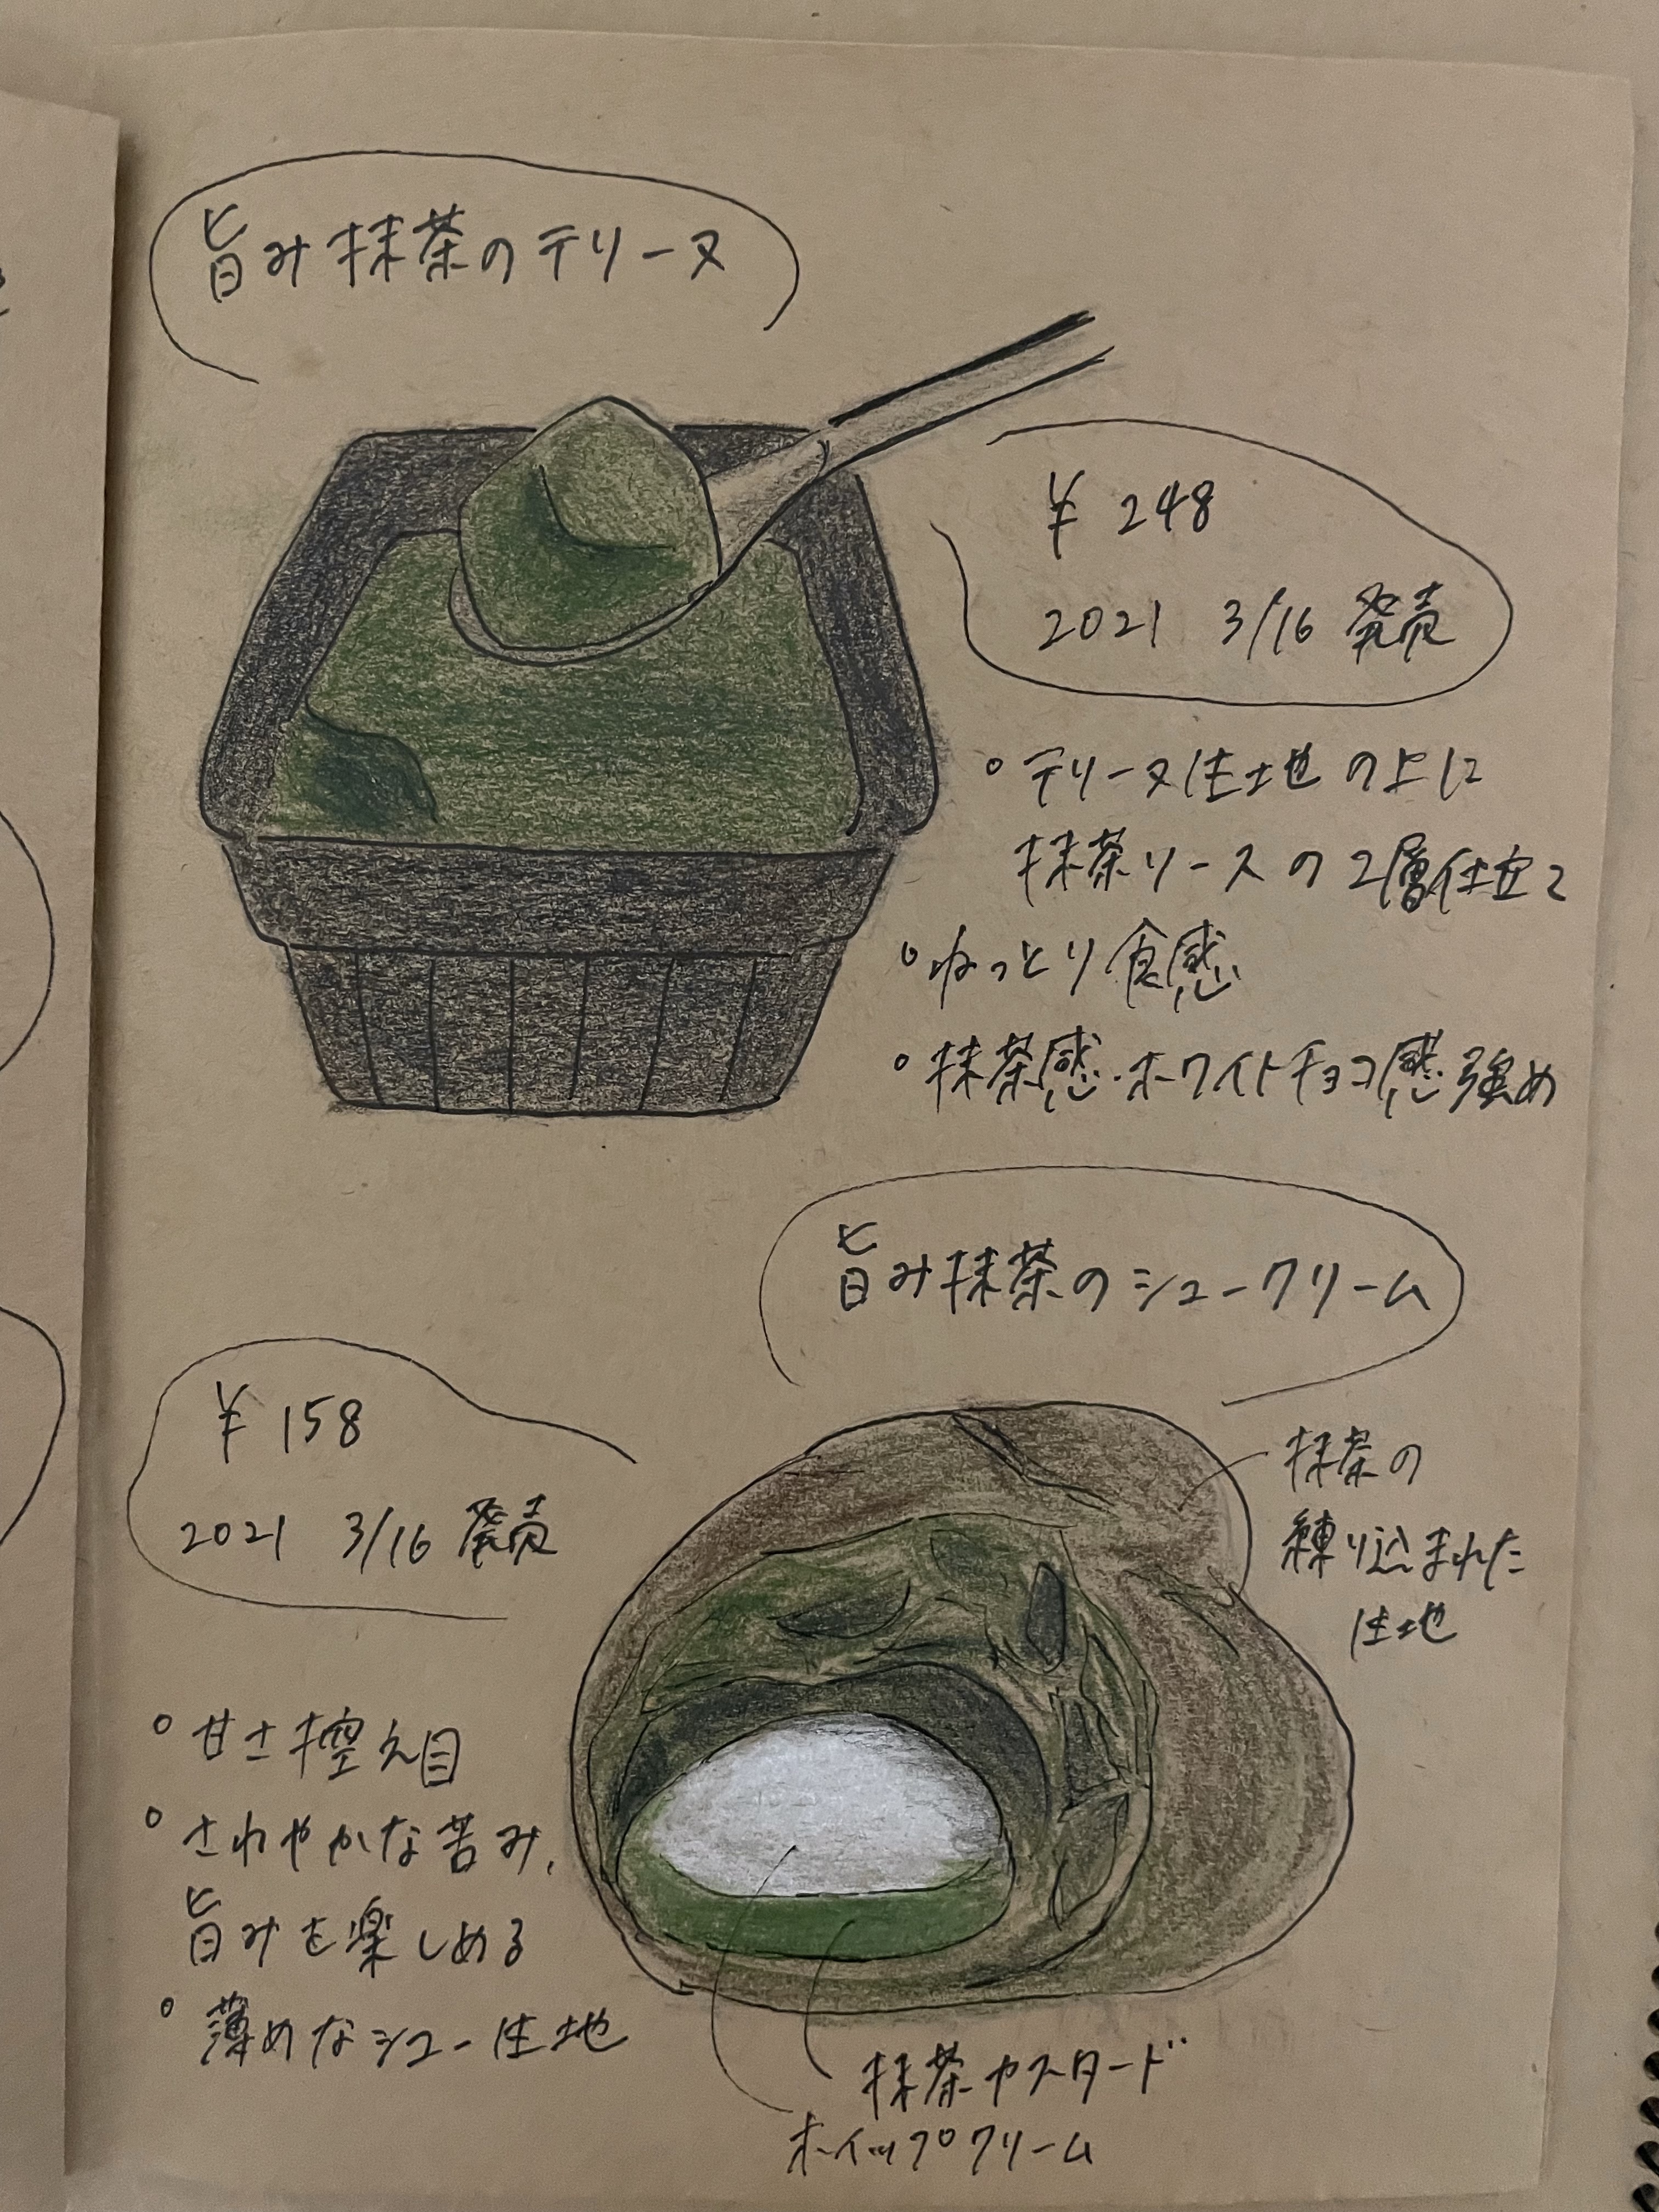 旨み抹茶のテリーヌ
¥248
2021 3/16 発売
◦テリーヌ生地の上に
抹茶ソースの2層仕立て
◦ねっとり食感
◦抹茶感・ホワイトチョコ感強め
旨み抹茶のシュークリーム
¥158
2021 3/16 発売
抹茶の
練り込まれた
生地
◦甘さ控え目
◦さわやかな苦み、
旨みを楽しめる
◦薄めなシュー生地
抹茶カスタード
ホイップクリーム